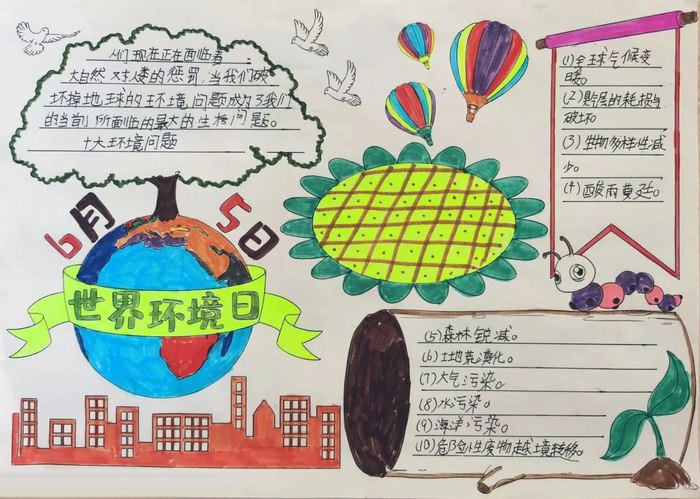 人们现在正在面临着
大自然对人类的惩罚,当我们破
坏掉地球的环境,问题成为了我们
的当前所面临的最大的生格问题。
十大环境问题
6月5日
世界环境日
(1)全球气候变
暖。
(2)臭层的耗损与
破坏
(3)生物多样性减
少。
(4)酸雨蔓延。
(5)森林锐减。
(6)土地荒漠化。
(7)大气污染。
(8)水污染。
(9)海洋污染。
(10)危险性废物越境转移。